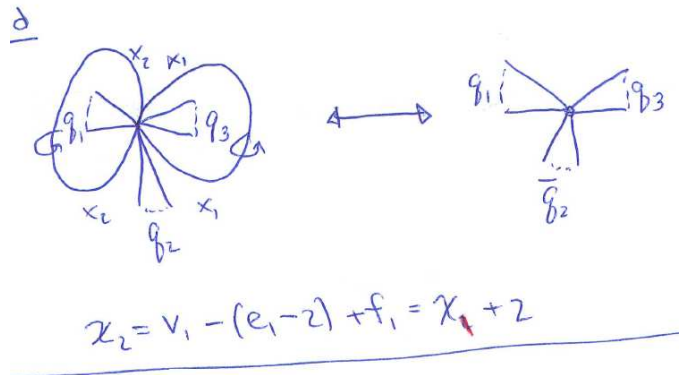 d
x₂ x₁
q₁ q₃
x₂ x₁
q₂
q₁ q₃
q̅₂
χ₂ = v₁ - (e₁-2) + f₁ = χ₁ + 2